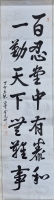 百忍堂中有泰和
一勤天下無難事